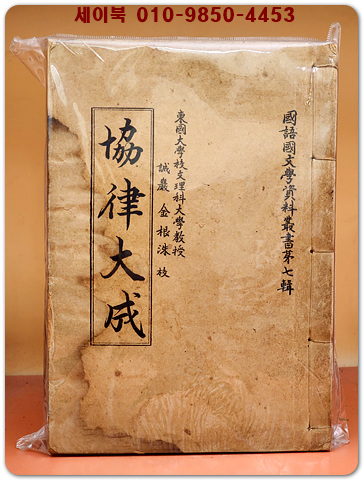 세이북 010-9850-4453
國語國文學資料叢書第七輯
東國大學校文理科大學敎授
誠巖 金根洙 校
協律大成